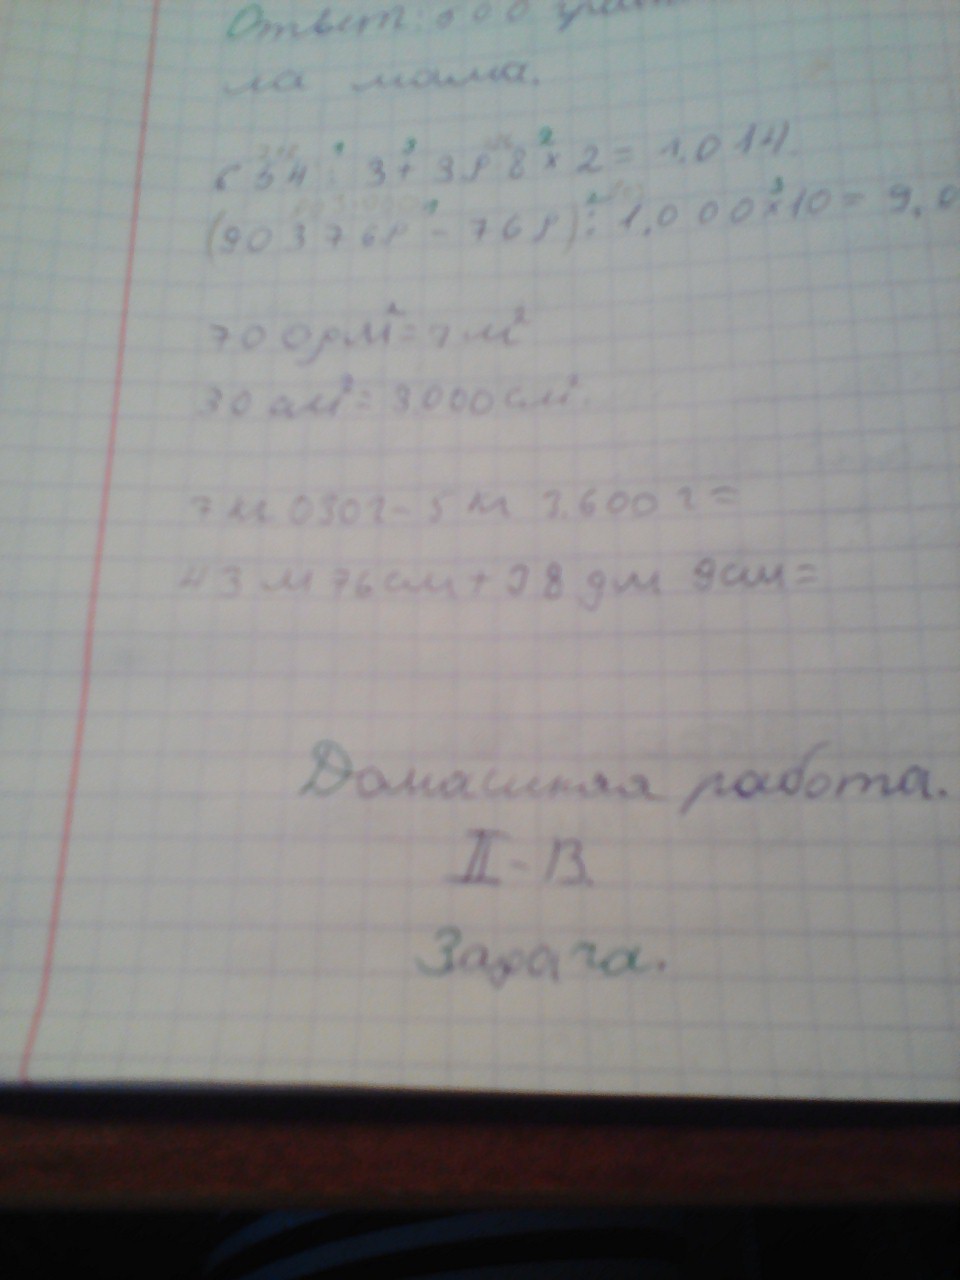 Ответ: 600 грам
ла мама.
654 : 3 + 398 × 2 = 1.014
(903768 - 768) : 1.000 × 10 = 9.0
700 дм² = 7 м²
30 дм² = 3000 см².
7 м 030 г - 5 м 3.600 г =
43 м 76 см + 38 дм 9 см =
Домашняя работа.
II - В.
Задача.